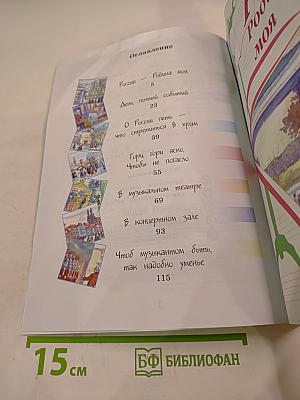 Оглавление
Россия — Родина моя
5
День, полный событий
23
О России петь —
что стремиться в храм
39
Гори, гори ясно,
Чтобы не погасло
55
В музыкальном театре
69
В концертном зале
93
Чтоб музыкантом быть,
так надобно уменье
115
моя
15 см
БФ БИБЛИОФАН